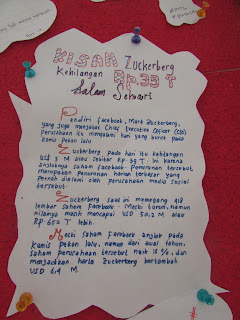 KISAH Zuckerberg
Kehilangan Rp.39 T
dalam Sehari
Pendiri facebook, Mark Zuckerberg,
yang juga menjabat Chief Executive Officer (CEO)
perusahaan itu mengalami hari yang buruk pada
Kamis pekan lalu
Zuckerberg pada hari itu kehilangan
USD 3 M atau sekitar Rp.39 T ini karena
anjloknya saham facebook. Penurunan tersebut
merupakan penurunan harian terbesar yang
pernah dialami oleh perusahaan media sosial
tersebut.
Zuckerberg saat ini memegang 419
lembar saham Facebook. Meski turun, namun
nilainya masih mencapai USD 50,2 M atau
Rp 652 T lebih.
Meski saham Facebook anjlok pada
Kamis pekan lalu, namun dari awal tahun,
saham perusahaan tersebut naik 15 %, dan
menjadikan harta Zuckerberg bertambah
USD 6,4 M.